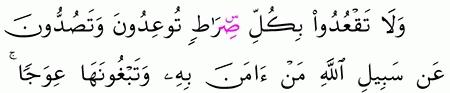 وَلَا تَقۡعُدُواْ بِكُلِّ صِّرَٰطٖ تُوعِدُونَ وَتَصُدُّونَ
عَن سَبِيلِ ٱللَّهِ مَنۡ ءَامَنَ بِهِۦ وَتَبۡغُونَهَا عِوَجٗاۚ